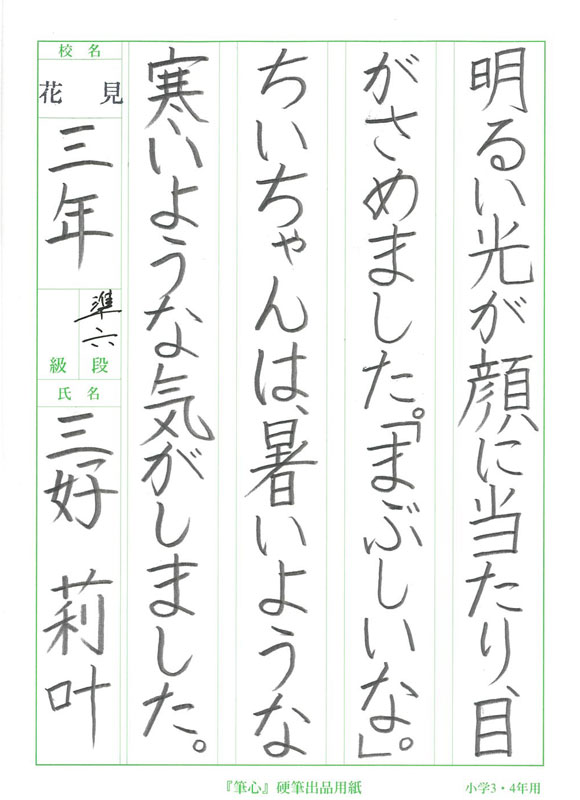 明るい光が顔に当たり、目
がさめました。「まぶしいな」。
ちいちゃんは、暑いような
寒いような気がしました。
校名
花見
三年
準六
級 段
氏名
三好 莉叶
『筆心』硬筆出品用紙
小学3・4年用